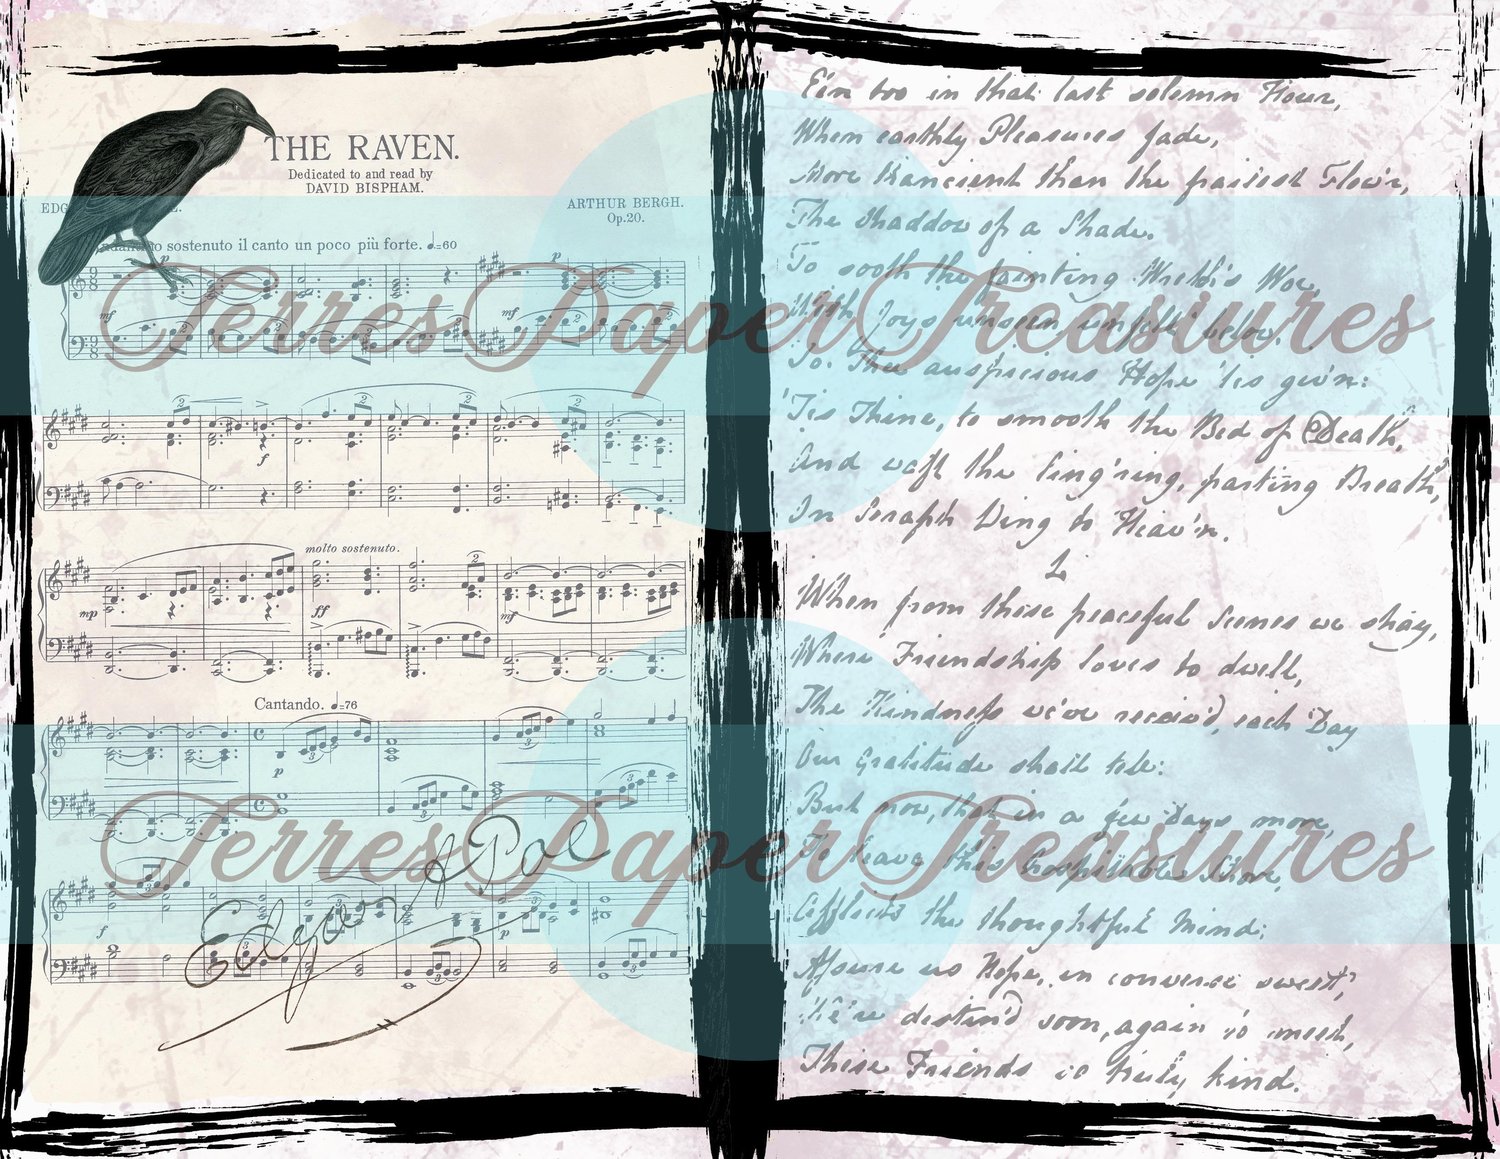 THE RAVEN.
Dedicated to and read by
DAVID BISPHAM.
ARTHUR BERGH.
Op.20.
sostenuto il canto un poco più forte. ♩.=60
p
mf
mf
p
Terres Paper Treasures
2
2
2
2
f
molto sostenuto.
mp
ff
mf
2
Cantando. ♩=76
p
p
3
3
3
3
Terres Paper Treasures
Edgar A Poe
3
f
p
3
3
3
E'en too in that last solemn Hour,
When earthly Pleasures fade,
More trancient than the fairest Flow'r,
The Shaddow of a Shade.
To sooth the fainting Wretch's Woe,
With Joys unseen, unfelt below,
To Thee auspicious Hope 'tis giv'n:
'Tis Thine, to smooth the Bed of Death,
And waft the ling'ring, parting Breath,
On Seraph Wing to Heav'n.
When from these peaceful Scenes we stray,
Where Friendship loves to dwell,
The Kindness we've receiv'd, each Day
Our Gratitude shall tell:
But now, that in a few Days more,
To leave this Hospitable
Afflicts the thoughtful Mind:
Assure us Hope, in converse sweet,
We're destin'd soon, again to meet,
These Friends so truly kind.